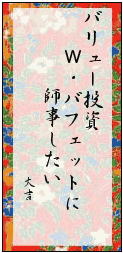 バリュー投資
W・バフェットに
師事したい
大吉